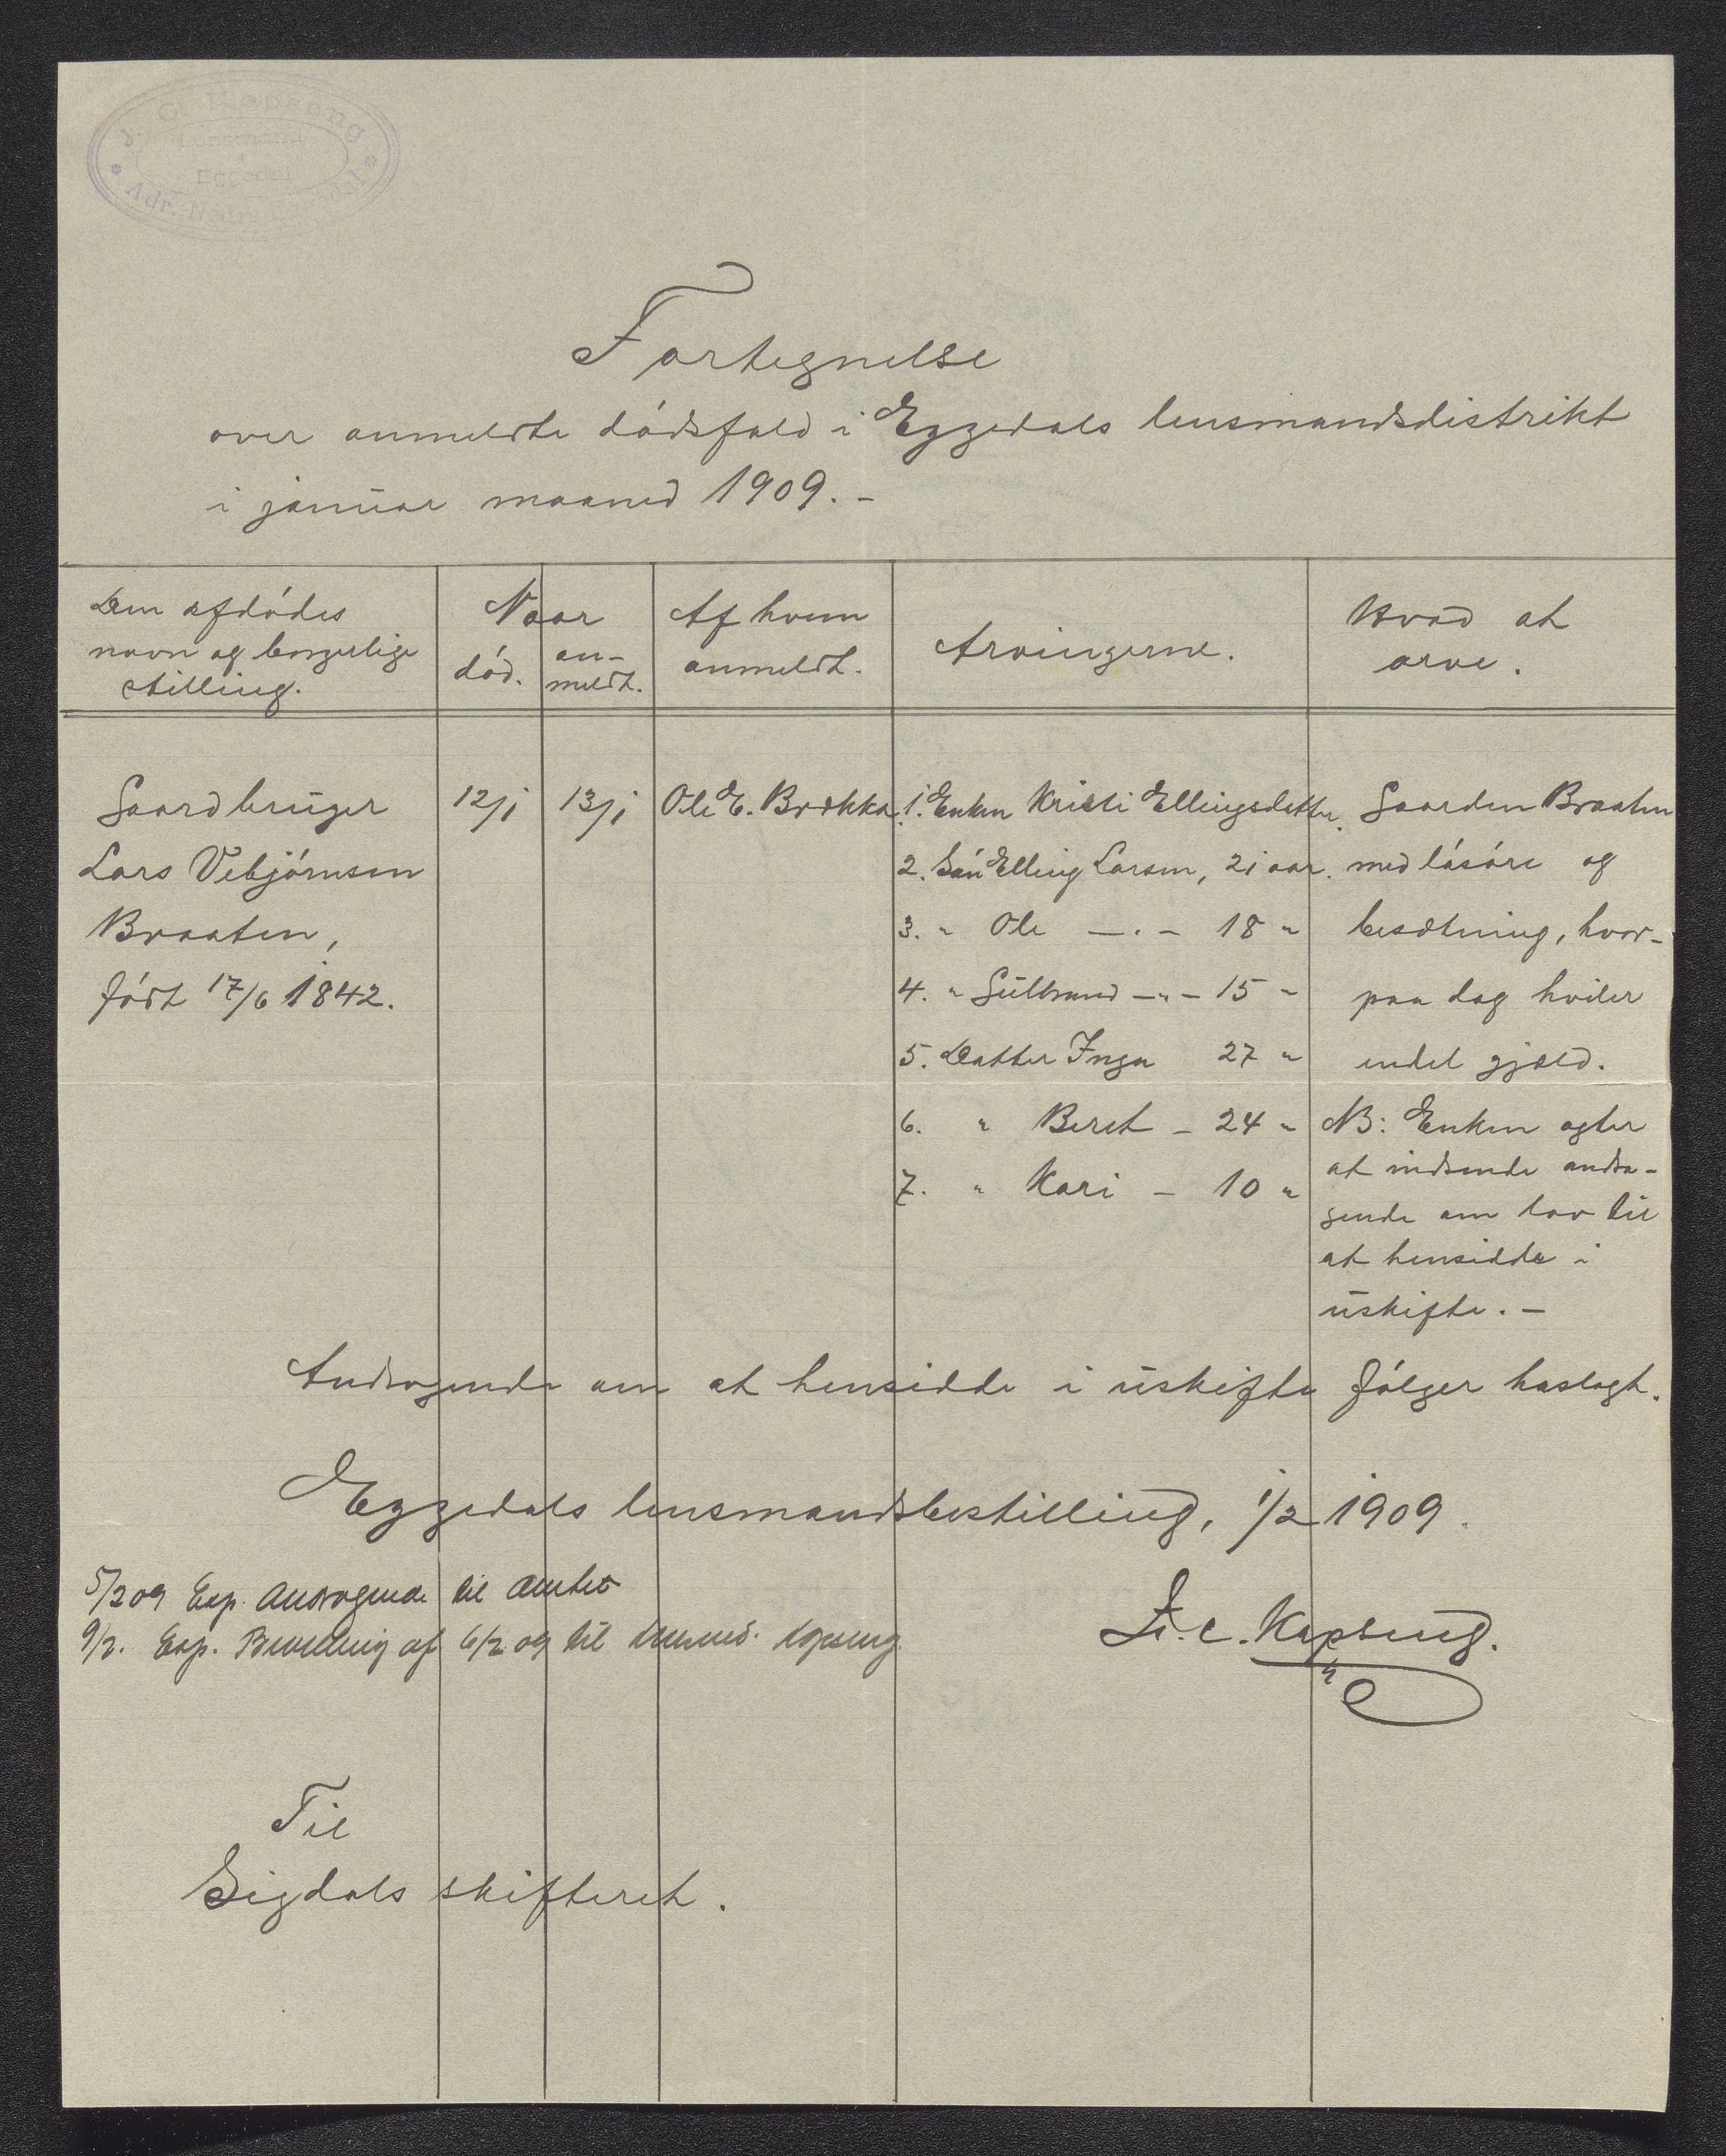 J. C. Kopseng
Lensmand
i
Eggedal
Adr. Nedre Eggedal
Fortegnelse
over anmeldte dødsfald i Eggedals lensmandsdistrikt
i januar maaned 1909. -
Den afdødes
navn og borgerlige
stilling.
Naar
død.
an-
meldt.
Af hvem
anmeldt.
Arvingerne.
Hvad at
arve.
Gaardbruger
Lars Vebjørnsen
Braaten,
født 17/6 1842.
12/1
13/1
Ole E. Brække
1. Enken Kristi Ellingsdatter.
2. Søn Elling Larsen, 21 aar.
3. " Ole —„— 18 "
4. " Gulbrand —„— 15 "
5. Datter Inga 27 "
6. " Beret - 24 "
7. " Kari - 10 "
Gaarden Braaten
med løsøre og
besætning, hvor-
paa dog hviler
endel gjæld.
NB: Enken agter
at indsende andra-
gende om lov til
at hensidde i
uskifte. -
Andragende om at hensidde i uskifte følger haslagt.
Eggedals lensmandsbestilling, 1/2 1909.
5/2 09 Exp. Andragende til Amtet
9/2. Exp. Bevilling af 6/2 09 til Lensmd. Kopseng
J. C. Kopseng.
Til
Sigdals skifteret.